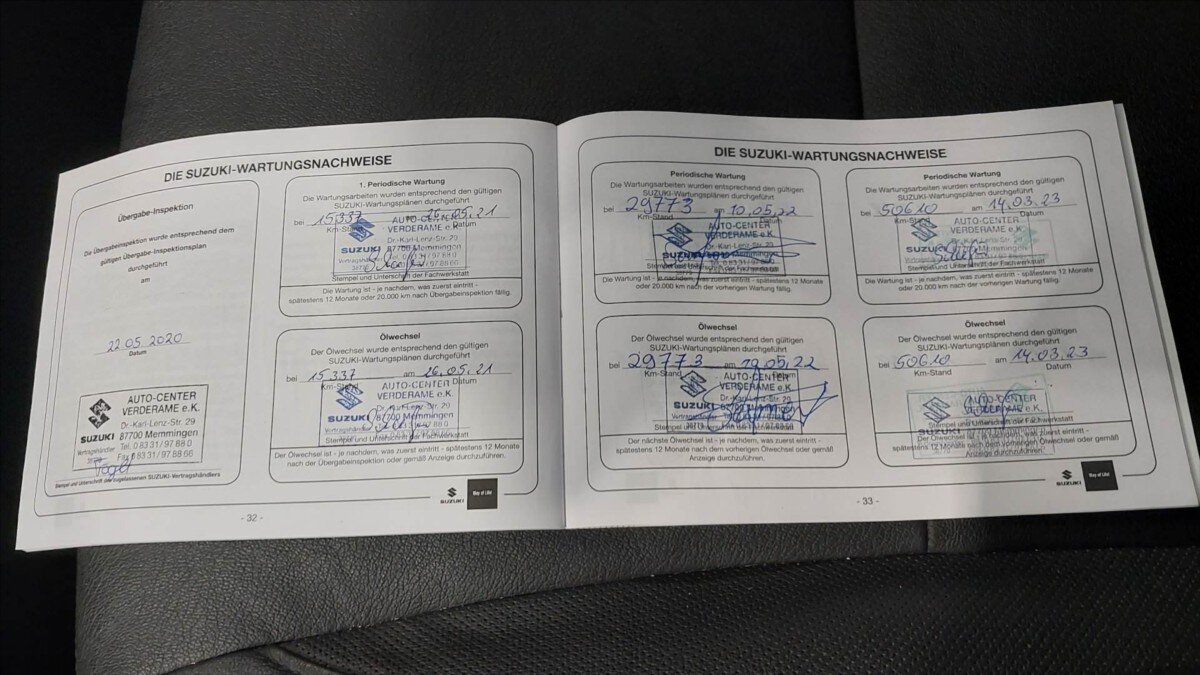 DIE SUZUKI-WARTUNGSNACHWEISE
Übergabe-Inspektion
Die Übergabeinspektion wurde entsprechend dem
gültigen Übergabe-Inspektionsplan
durchgeführt
am
22 05 2020
Datum
AUTO-CENTER
VERDERAME e.K.
Dr.-Karl-Lenz-Str. 29
SUZUKI 87700 Memmingen
Vertragshändler Tel. 0 83 31 / 97 88 0
Fax 0 83 31 / 97 88 66
Stempel und Unterschrift des zugelassenen SUZUKI-Vertragshändlers
1. Periodische Wartung
Die Wartungsarbeiten wurden entsprechend den gültigen
SUZUKI-Wartungsplänen durchgeführt
bei 15337 am 26.05.21
Km-Stand Datum
AUTO-CENTER
VERDERAME e.K.
Dr.-Karl-Lenz-Str. 29
SUZUKI 87700 Memmingen
Vertragshändler
Stempel und Unterschrift der Fachwerkstatt
Die Wartung ist - je nachdem, was zuerst eintritt -
spätestens 12 Monate oder 20.000 km nach Übergabeinspektion fällig.
Ölwechsel
Der Ölwechsel wurde entsprechend den gültigen
SUZUKI-Wartungsplänen durchgeführt
bei 15337 am 26.05.21
Km-Stand Datum
AUTO-CENTER
VERDERAME e.K.
Dr.-Karl-Lenz-Str. 29
SUZUKI 87700 Memmingen
Vertragshändler
Stempel und Unterschrift der Fachwerkstatt
Der Ölwechsel ist - je nachdem, was zuerst eintritt - spätestens 12 Monate
nach der Übergabeinspektion oder gemäß Anzeige durchzuführen.
SUZUKI
Way of Life!
- 32 -
DIE SUZUKI-WARTUNGSNACHWEISE
Periodische Wartung
Die Wartungsarbeiten wurden entsprechend den gültigen
SUZUKI-Wartungsplänen durchgeführt
bei 29773 am 10.05.22
Km-Stand Datum
AUTO-CENTER
VERDERAME e.K.
Dr.-Karl-Lenz-Str. 29
SUZUKI
Stempel und Unterschrift der Fachwerkstatt
Die Wartung ist - je nachdem, was zuerst eintritt - spätestens 12 Monate
oder 20.000 km nach der vorherigen Wartung fällig.
Ölwechsel
Der Ölwechsel wurde entsprechend den gültigen
SUZUKI-Wartungsplänen durchgeführt
bei 29773 am 10.05.22
Km-Stand Datum
AUTO-CENTER
VERDERAME e.K.
Dr.-Karl-Lenz-Str. 29
SUZUKI 87700 Memmingen
Stempel und Unterschrift der Fachwerkstatt
Der nächste Ölwechsel ist - je nachdem, was zuerst eintritt -
spätestens 12 Monate nach dem vorherigen Ölwechsel oder gemäß
Anzeige durchzuführen.
Periodische Wartung
Die Wartungsarbeiten wurden entsprechend den gültigen
SUZUKI-Wartungsplänen durchgeführt
bei 50610 am 14.03.23
Km-Stand Datum
AUTO-CENTER
VERDERAME e.K.
Dr.-Karl-Lenz-Str. 29
SUZUKI Memmingen
Stempel und Unterschrift der Fachwerkstatt
Die Wartung ist - je nachdem, was zuerst eintritt - spätestens 12 Monate
oder 20.000 km nach der vorherigen Wartung fällig.
Ölwechsel
Der Ölwechsel wurde entsprechend den gültigen
SUZUKI-Wartungsplänen durchgeführt
bei 50610 am 14.03.23
Km-Stand Datum
AUTO-CENTER
VERDERAME e.K.
SUZUKI
Stempel und Unterschrift der Fachwerkstatt
Der Ölwechsel ist - je nachdem, was zuerst eintritt -
spätestens 12 Monate nach dem vorherigen Ölwechsel oder gemäß
Anzeige durchzuführen.
SUZUKI
Way of Life!
- 33 -